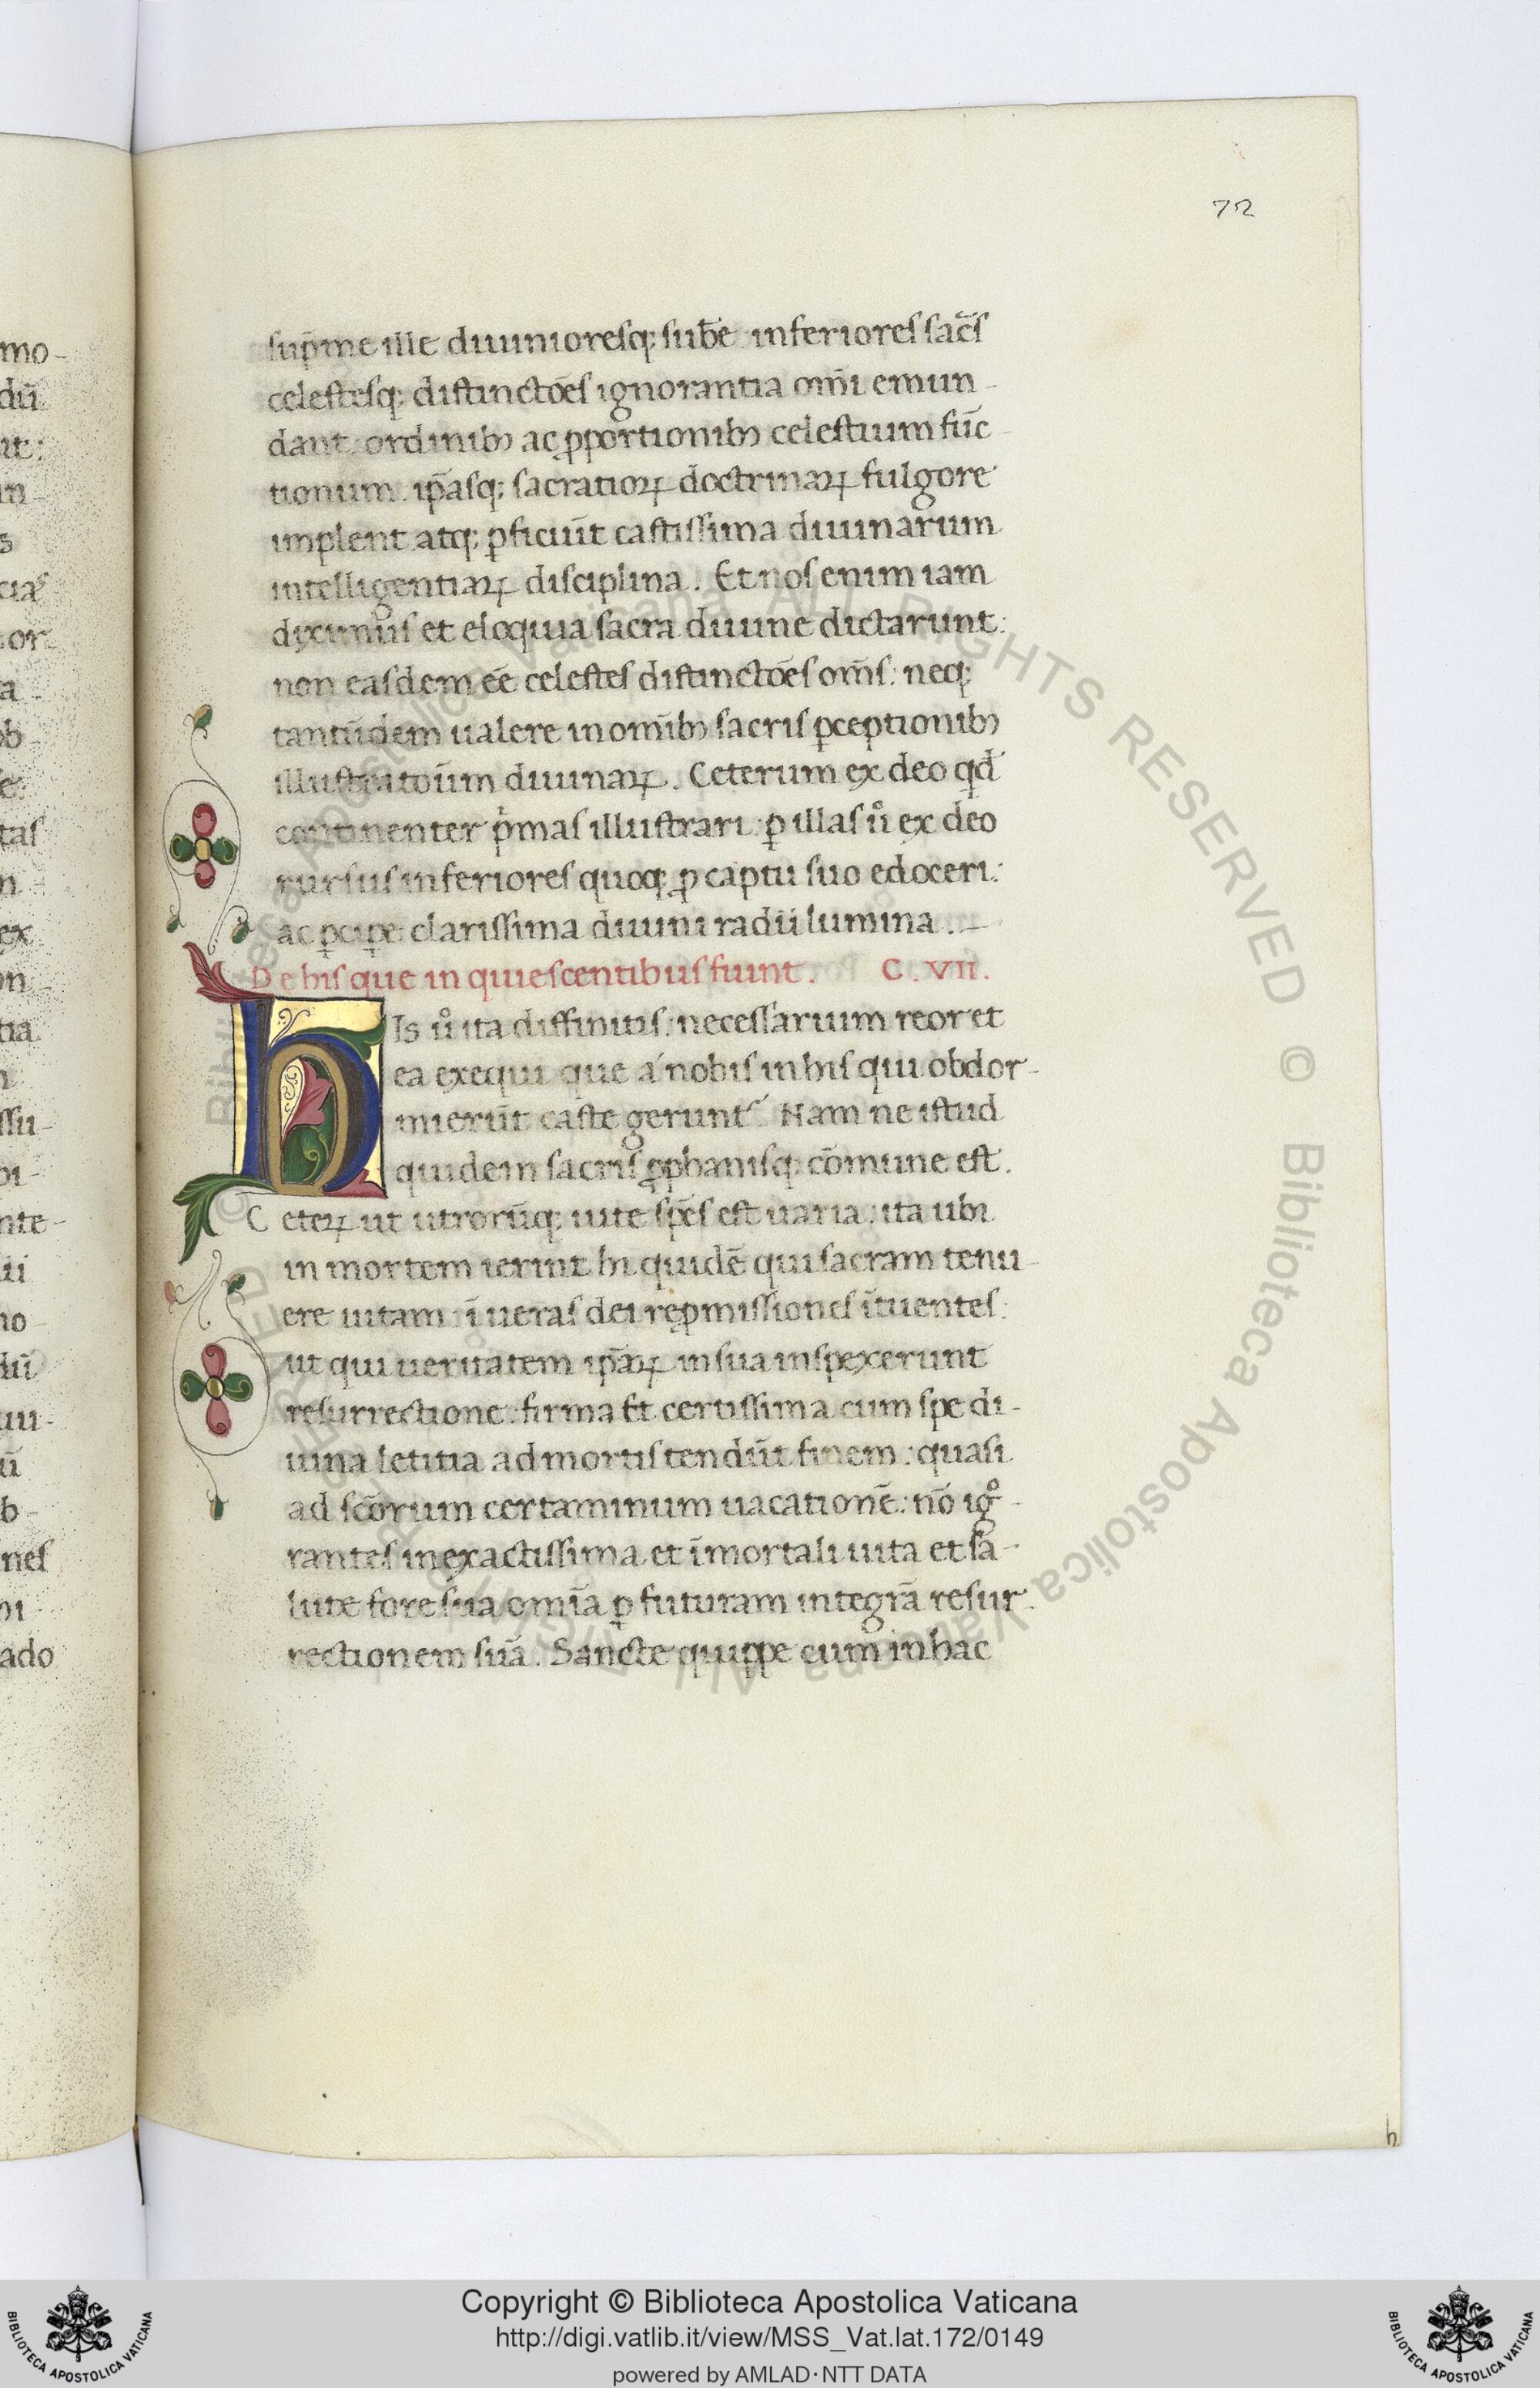 72
sup̄me ille diuinioresq; sub̄e inferiores sac̄s
celestesq; distinctōes ignorantia om̄i emun-
dant: ordinibꝫ ac ꝓportionibꝫ celestium fūc
tionum. ip̄asq; sacratioꝝ doctrinaꝝ fulgore
implent atq; ꝑficiūt castissima diuinarum
intelligentiaꝝ disciplina. Et nos enim iam
dyximus et eloquia sacra diuine dictarunt:
non easdem eē celestes distinctōes om̄s: neq;
tantūdem ualere in om̄ibꝫ sacris ꝑceptionibꝫ
illustratoūm diuinaꝝ. Ceterum ex deo qd̄
continenter pͥmas illustrari: ꝑ illas uͦ ex deo
rursus inferiores quoq; ꝓ captu suo edoceri:
ac ꝑcipe clarissima diuini radii lumina.
De his que in quiescentibus fiunt. C. VII.
hIs uͦ ita diffinitis: necessarium reor et
ea exequi que a nobis in his qui obdor-
mierūt caste gerunt. Nam ne istud
quidem sacris ꝓphanisq; cōmune est.
Ceteꝝ ut utrorūq; uite sp̄es est uaria: ita ubi
in mortem ierint hi quidē qui sacram tenu-
ere uitam: ī ueras dei reꝓmissiones ītuentes:
ut qui ueritatem ip̄aꝝ in sua inspexerunt
resurrectione: firma et certissima cum spe di-
uina letitia ad mortis tendūt finem: quasi
ad sc̄orum certaminum uacationē: nō igͦ-
rantes in exactissima et īmortali uita et sa-
lute fore sua om̄ia ꝑ futuram integrā resur-
rectionem suā. Sancte quippe cum in hac
h
mo-
dū
ut:
in-
s
cias
or
a-
ob-
e:
tas
n-
ex
on-
tia
n
ssu-
bi-
nte-
ii
no-
dū
uu-
ū
b-
nes
oi-
ado
Copyright © Biblioteca Apostolica Vaticana
http://digi.vatlib.it/view/MSS_Vat.lat.172/0149
powered by AMLAD·NTT DATA
BIBLIOTECA APOSTOLICA VATICANA
BIBLIOTECA APOSTOLICA VATICANA
© Biblioteca Apostolica Vaticana ALL RIGHTS RESERVED © Biblioteca Apostolica Vaticana ALL RIGHTS RESERVED